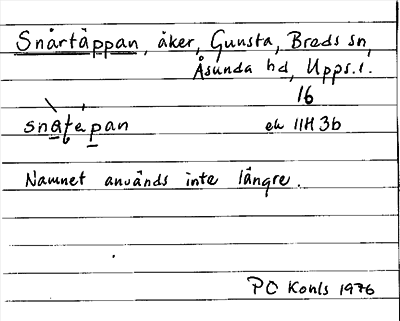 Snårtäppan, åker, Gunsta, Breds sn,
Åsunda hd, Upps.l.
16
snat̩epan ek 11H 3b
Namnet används inte längre.
PO Konls 1976